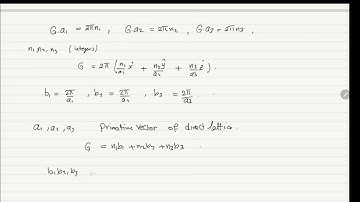 G.a₁ = 2πn₁ , G.a₂ = 2πn₂ , G.a₃ = 2πn₃ ,
n₁, n₂, n₃ (integers)
G = 2π ( n₁/a₁ x̂ + n₂/a₂ ŷ + n₃/a₃ ẑ ) .
b₁ = 2π/a₁ , b₂ = 2π/a₂ , b₃ = 2π/a₃ .
a₁, a₂, a₃ Primitive vector of direct lattice .
G = n₁b₁ + n₂b₂ + n₃b₃ .
b₁, b₂, b₃